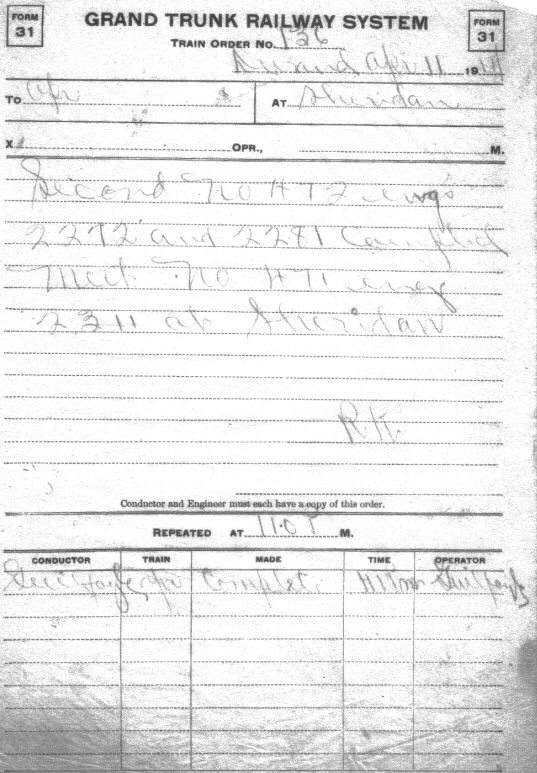 FORM 31 GRAND TRUNK RAILWAY SYSTEM FORM 31
TRAIN ORDER No. 136
Durand Apr 11 19
TO Opr AT Sheridan
X OPR., M.
Second No 472 engs
2272 and 2281 Coupled
Meet No 471 eng
2311 at Sheridan
Conductor and Engineer must each have a copy of this order.
REPEATED AT 1107 M.
CONDUCTOR TRAIN MADE TIME OPERATOR
Complete